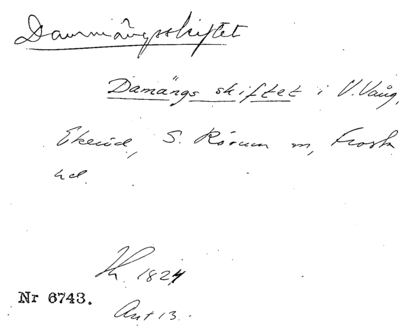 Dammängsskiftet
Damängs skiftet i V. Vång,
Ekeröd, S. Rörum m, Frosta
hd.
1824
Nr 6743.
Akt 13.